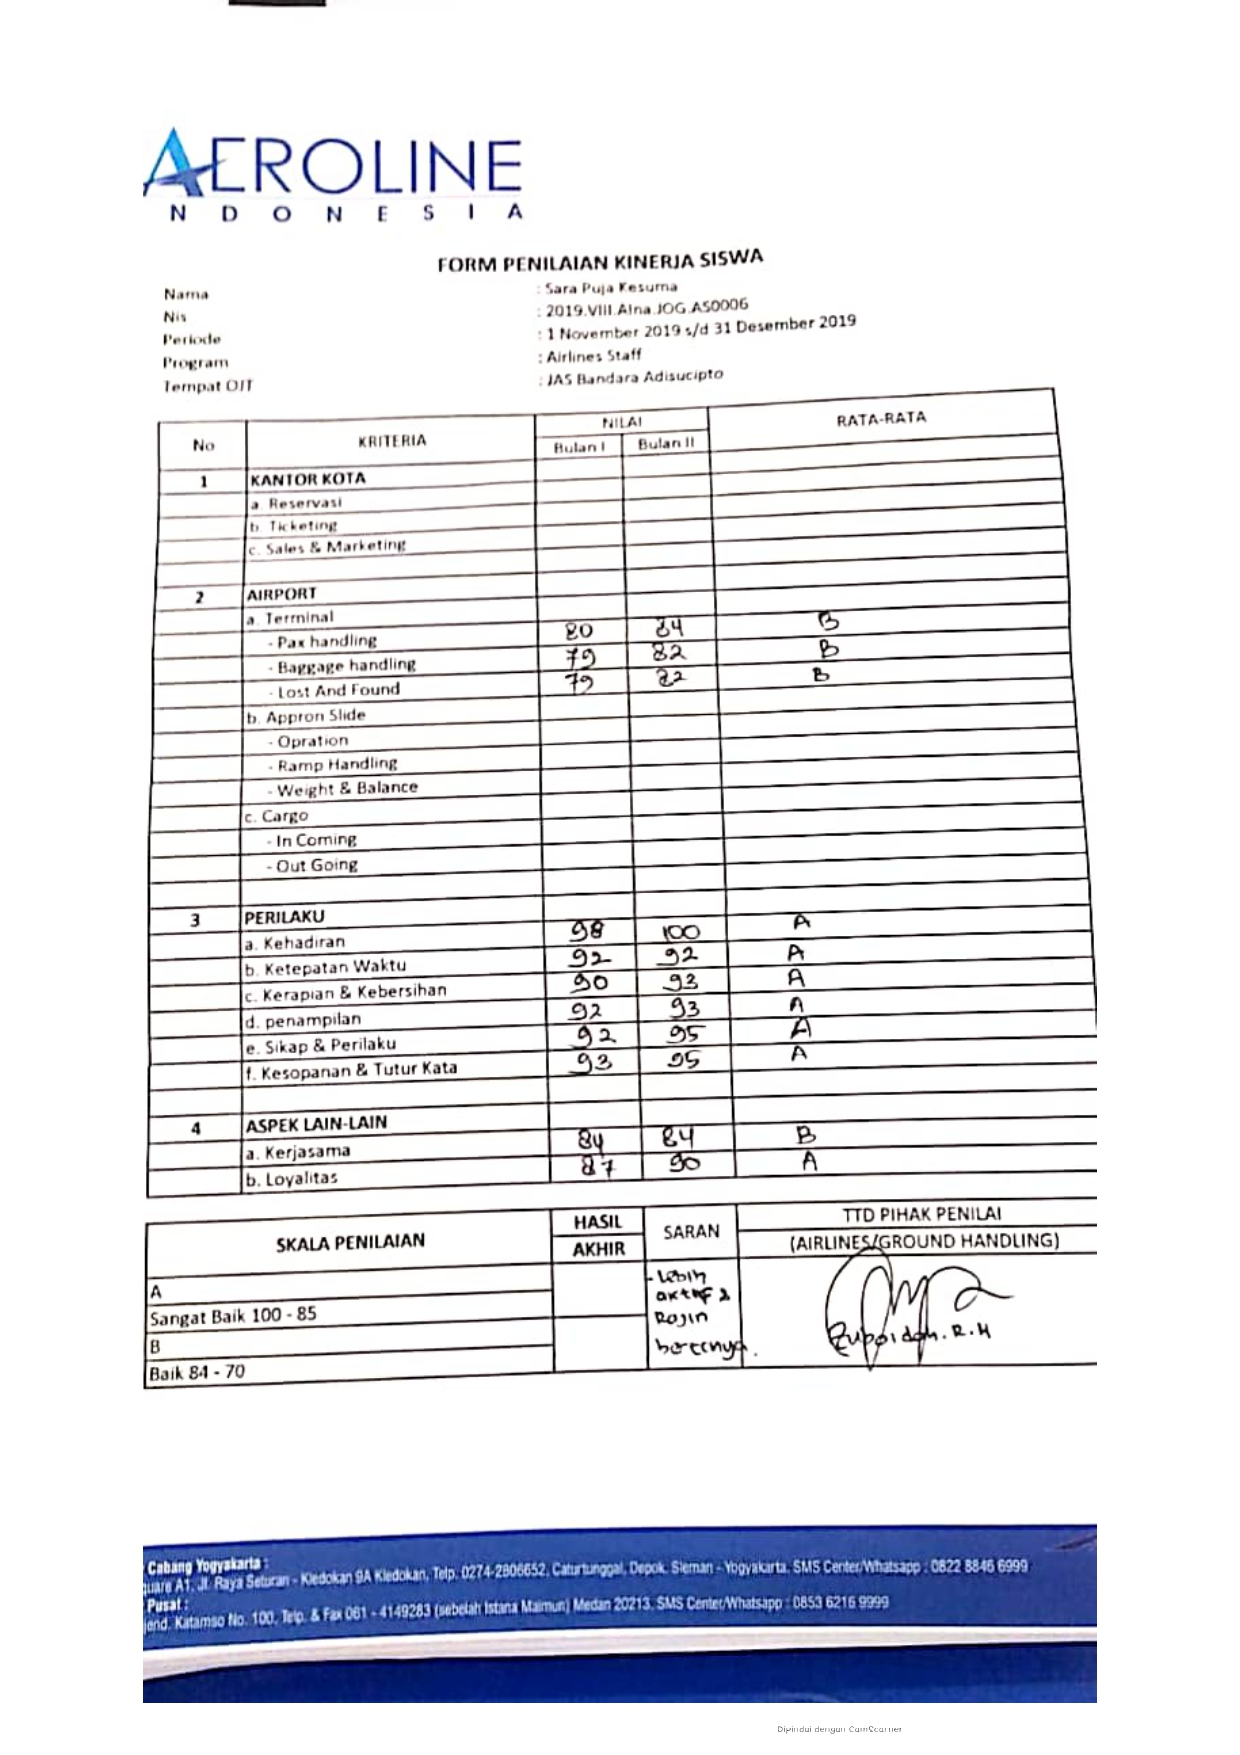 AEROLINE
NDONESIA
FORM PENILAIAN KINERJA SISWA
Nama : Sara Puja Kesuma
Nis : 2019.VIII.AIna.JOG.AS0006
Periode : 1 November 2019 s/d 31 Desember 2019
Program : Airlines Staff
Tempat OJT : JAS Bandara Adisucipto
No KRITERIA NILAI RATA-RATA
Bulan I Bulan II
1 KANTOR KOTA
a. Reservasi
b. Ticketing
c. Sales & Marketing
2 AIRPORT
a. Terminal
- Pax handling 80 84 B
- Baggage handling 79 82 B
- Lost And Found 79 82 B
b. Appron Slide
- Opration
- Ramp Handling
- Weight & Balance
c. Cargo
- In Coming
- Out Going
3 PERILAKU
a. Kehadiran 98 100 A
b. Ketepatan Waktu 92 92 A
c. Kerapian & Kebersihan 90 93 A
d. penampilan 92 93 A
e. Sikap & Perilaku 92 95 A
f. Kesopanan & Tutur Kata 93 95 A
4 ASPEK LAIN-LAIN
a. Kerjasama 84 84 B
b. Loyalitas 87 90 A
SKALA PENILAIAN HASIL AKHIR SARAN TTD PIHAK PENILAI
(AIRLINES/GROUND HANDLING)
A
Sangat Baik 100 - 85
B
Baik 84 - 70
- Lebih
aktif 2
Rajin
bertanya.
Cabang Yogyakarta :
quare A1, Jl. Raya Seturan - Kledokan 9A Kledokan, Telp. 0274-2806652, Caturtunggal, Depok, Sleman - Yogyakarta. SMS Center/Whatsapp : 0822 8846 6999
Pusat :
jend. Katamso No. 100, Telp. & Fax 061 - 4149283 (sebelah Istana Maimun) Medan 20213. SMS Center/Whatsapp : 0853 6216 9999
Dipindai dengan CamScanner